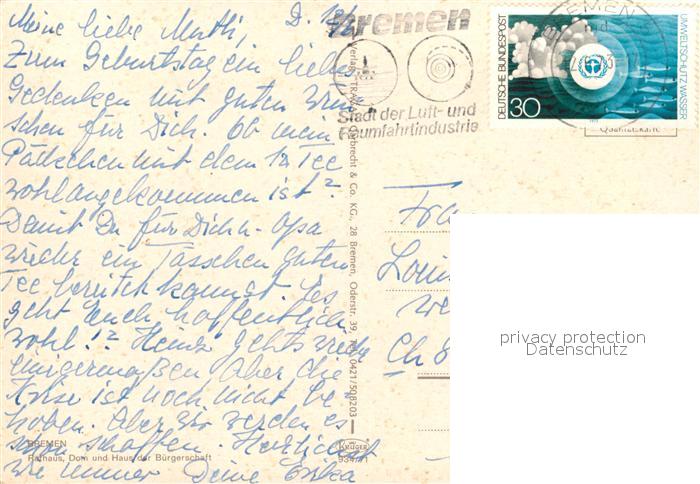 Meine liebe Mutti, D. 12/2
Zum Geburtstag ein liebes
Gedenken mit guten Wün
schen für Dich. Ob mein
Päckchen mit dem Tee
wohlangekommen ist?
Damit Du für Dich u. Opa
wieder ein Tässchen guten
Tee bereiten kannst. Es
geht euch hoffentlich
wohl!? Heinz gehts wieder
einigermaßen aber die
Krise ist noch nicht be-
hoben. Aber wir werden es
schon schaffen. Herzlichst
wie immer Deine Erika
BREMEN
Rathaus, Dom und Haus der Bürgerschaft
Bremen
Stadt der Luft- und
Raumfahrtindustrie
DEUTSCHE BUNDESPOST
30
UMWELTSCHUTZ WASSER
BREMEN
Qualitätskarte
& Co. KG., 28 Bremen, Oderstr. 39, Tel. 0421/508203
KRÜGER
934/11
Fra
Loui
We
Ch 8
privacy protection
Datenschutz